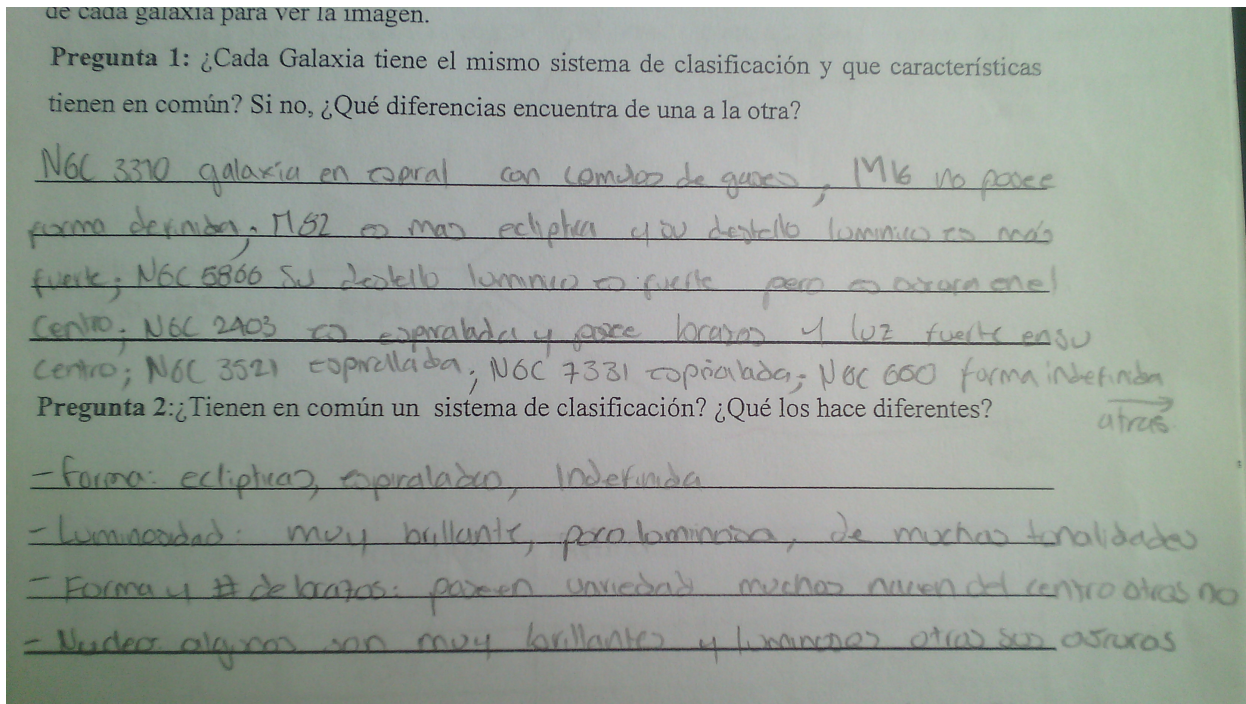 de cada galaxia para ver la imagen.
Pregunta 1: ¿Cada Galaxia tiene el mismo sistema de clasificación y que características
tienen en común? Si no, ¿Qué diferencias encuentra de una a la otra?
NGC 3310 galaxia en espiral con comulos de gases, M16 no posee
forma definida; M82 es mas ecliptica y su destello luminico es más
fuerte; NGC 5866 su destello luminico es fuerte pero es oscura en el
centro; NGC 2403 es espiralada y posee brazos y luz fuerte en su
centro; NGC 3521 espirallada; NGC 7331 espiralada; NGC 660 forma indefinida
Pregunta 2:¿Tienen en común un sistema de clasificación? ¿Qué los hace diferentes?
atras
- Forma: eclipticas, espiralados, Indefinida
- Luminosidad: muy brillante, poco luminosa, de muchas tonalidades
- Forma y # de brazos: poseen variedad muchos nacen del centro otras no
- Nucleo: algunos son muy brillantes y luminosos otras son oscuras